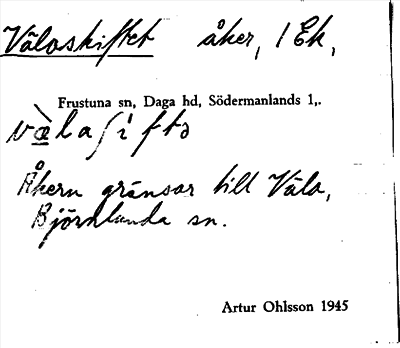 Välaskiftet åker, 1 Ek,
Frustuna sn, Daga hd, Södermanlands l,.
vὲ̀laʃiftə
Åkern gränsar till Väla,
Björnlunda sn.
Artur Ohlsson 1945